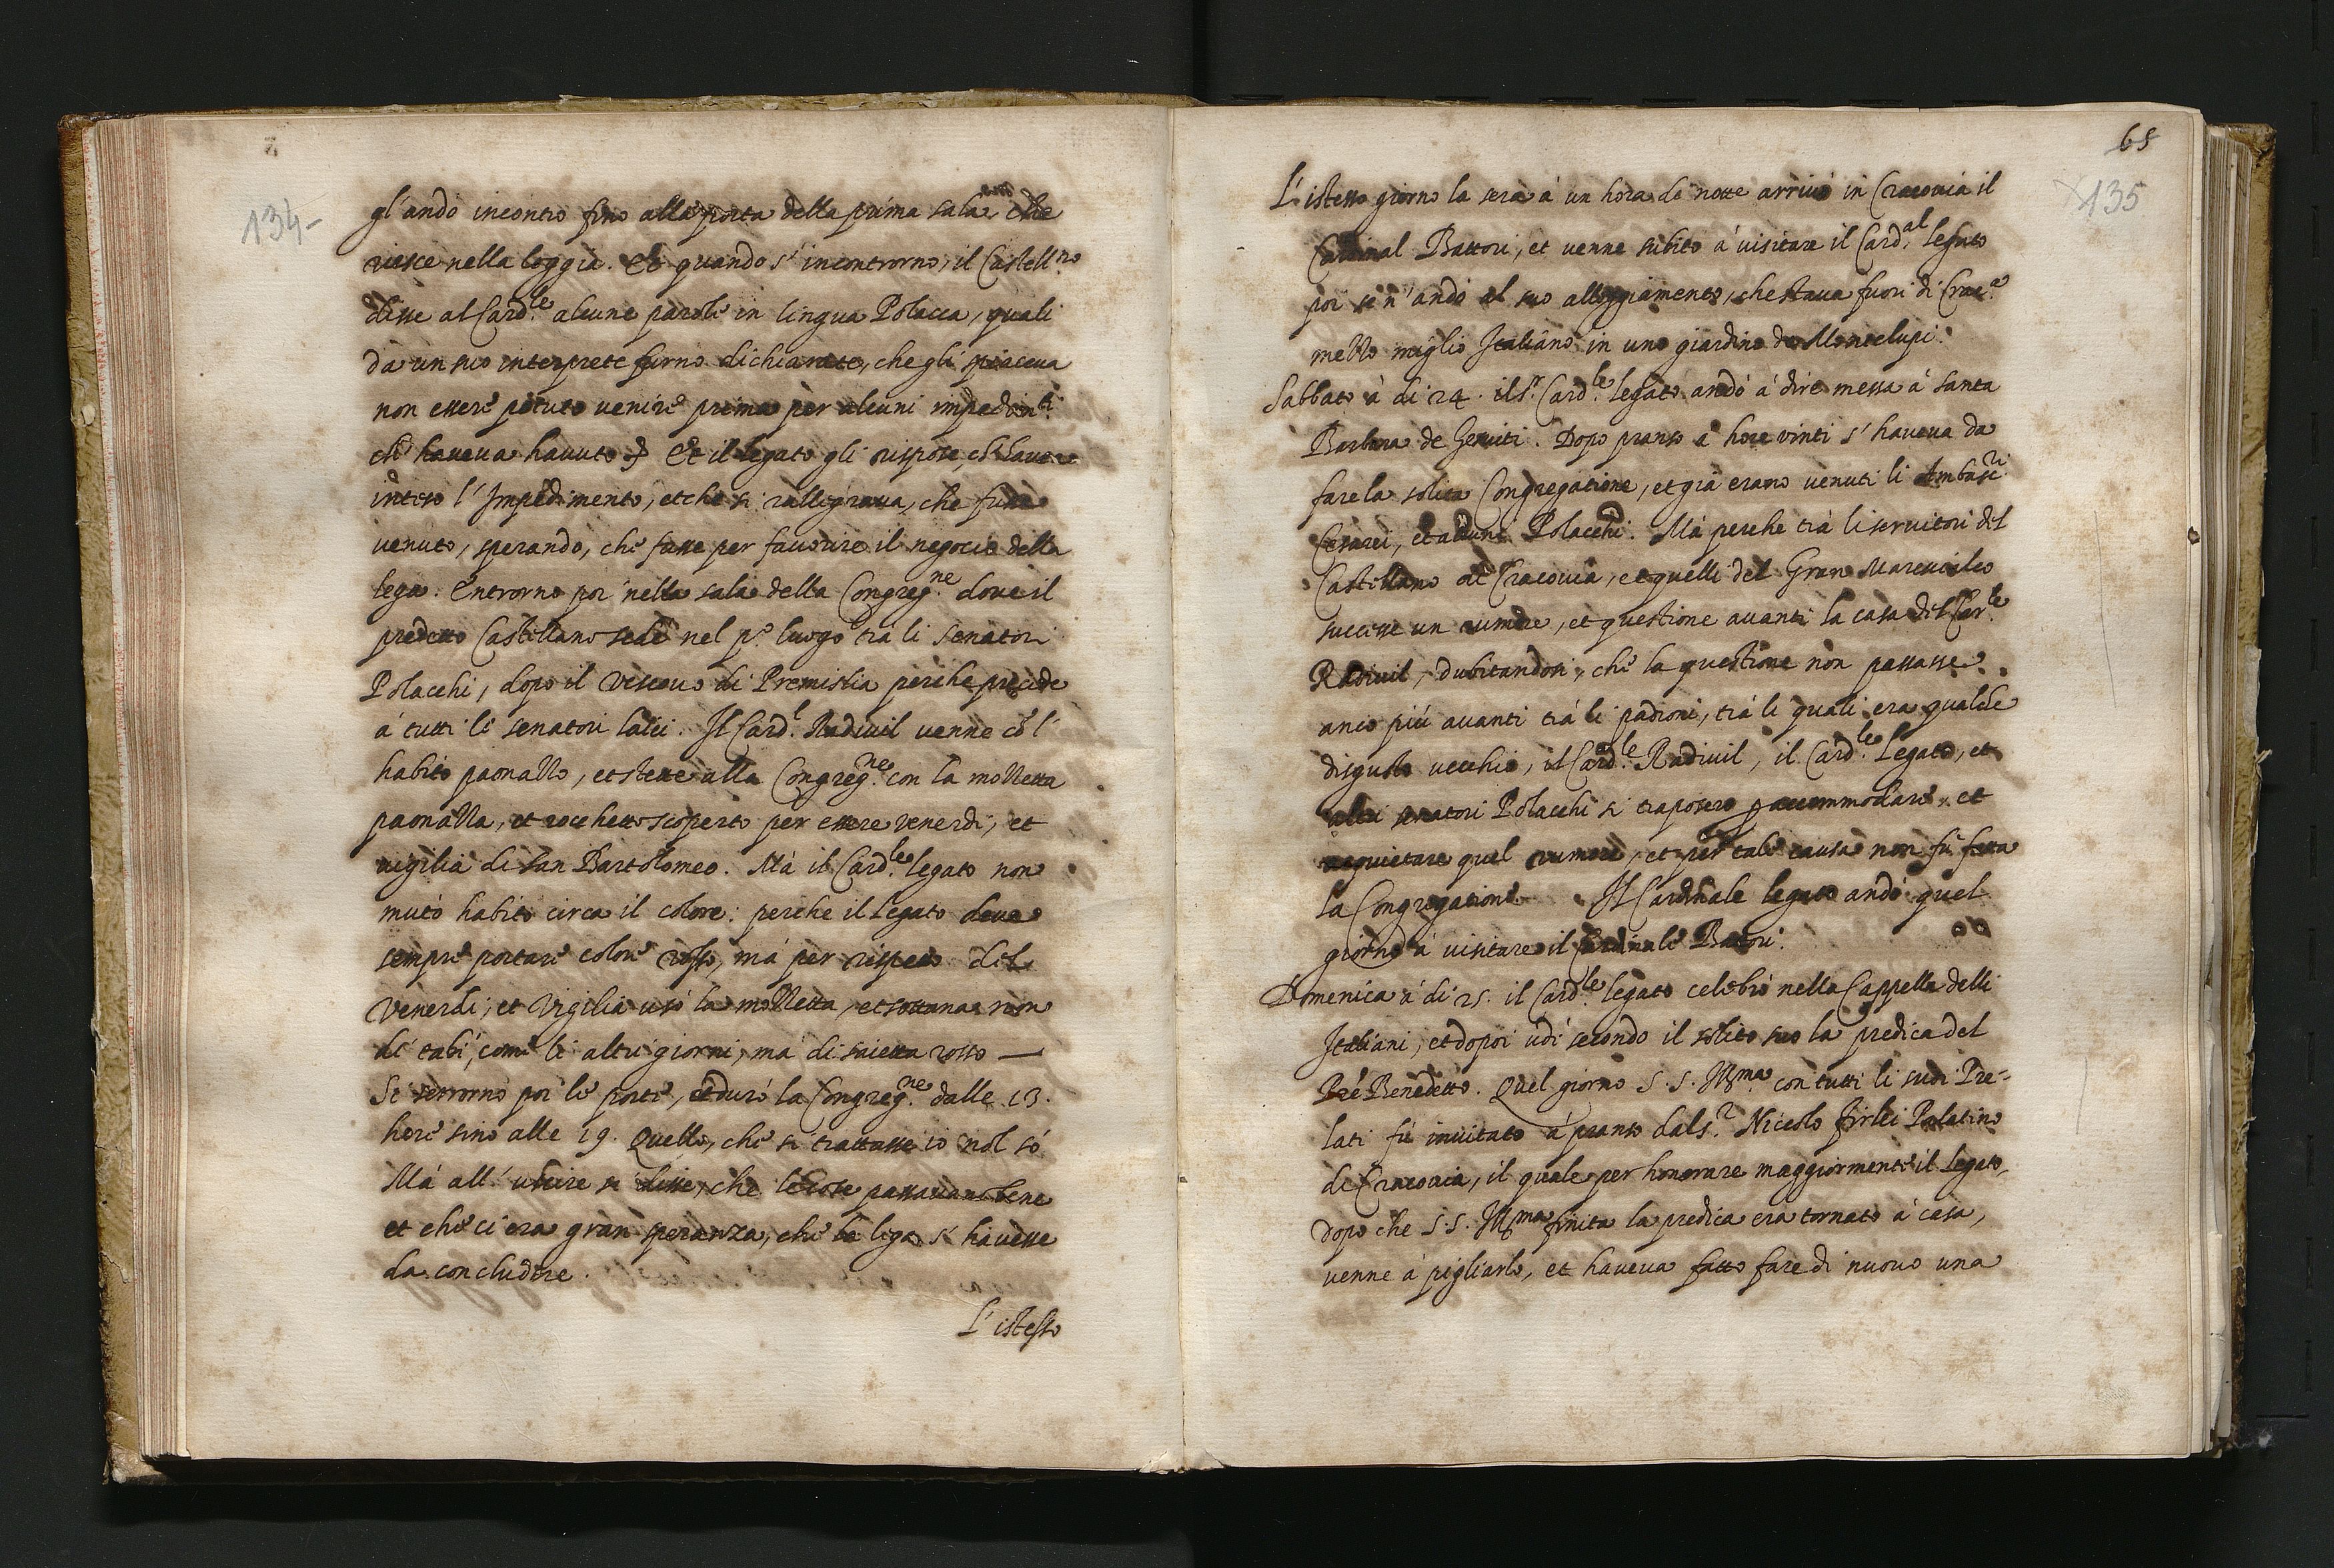 134-
gl'andò incontro fino alla porta della prima sala, che
riesce nella loggia. Et quando s'incontrorno, il Castell.no
disse al Card.le alcune parole in lingua Polacca, quali
da un suo interprete furno dichiarate, che gli spiaceva
non essere potuto venire prima per alcuni impedim.ti
che haveva havuto. Et il legato gli rispose, ch'havere
inteso l'Impedimento, et che si rallegrava, che fusse
venuto, sperando, che fusse per favorire il negocio della
lega. Entrorno poi nella sala della Congreg.ne dove il
predetto Castellano sedè nel p.o luogo trà li Senatori
Polacchi, dopo il Vescovo di Premislia perche precede
à tutti li senatori laici. Il Card.l Radivil venne cõ l'
habito paonazzo, et stette alla Congreg.ne con la mozzetta
paonazza, et rocchetto scoperto per essere venerdi, et
vigilia di san Bartolomeo. Mà il Card.le legato non
mutò habito circa il colore: perche il Legato deve
sempre portare colore rosso, mà per rispetto del
Venerdi, et Vigilia usò la mozzetta, et sottana non
di tabi, come li altri giorni, mà di saietta rosso —
Si serrorno poi le porte, et durò la Congreg.ne dalle 13.
hore sino alle 19. Quello, che si trattasse io nol sò
Mà all'uscire si disse, che le cose passavano bene
et che ci era gran speranza, che la liga s'havesse
da concludere.
L'istesso
68
135
L'istesso giorno la sera à un hora de notte arrivò in Cracovia il
Cardinal Battori, et venne subito à visitare il Card.al Legato
poi se n'andò al suo alloggiamento, che stava fuori di Crac.a
mezzo miglio Italiano in uno giardino de Montelupi.
Sabbato à di 24. il s.r Card.le legato andò à dire messa à santa
Barbara de Gesuiti. Dopo pranso à hore vinti s'haveva da
fare la solita Congregatione, et già erano venuti li Ambasc.ri
Cesarei, et alcuni Polacchi. Mà perche trà li servitori del
Castellano di Cracovia, et quelli del Gran Marescialco
successe un rumore, et questione avanti la casa del Car.le
Radivil, dubitandosi, che la questione non passasse
anco più avanti trà li padroni, trà li quali era qualche
disgusto vecchio, il Card.le Radivil, il Card.le Legato, et
altri senatori Polacchi si traposero p accommodare, et
acquietare quel rumore, et per tale causa non fù fatta
la Congregatione. Il Cardinale legato andò quel
giorno à visitare il Cardinale Battori.
Domenica à di 25. il Card.le legato celebrò nella Cappella delli
Italiani, et dopoi udì secondo il solito suo la predica del
Prè Benedetto. Quel giorno S. S. Ill.ma con tutti li suoi Pre-
lati fù invitato à pranso dal s.r Nicolo Firlei Palatino
di Cracovia, il quale per honorare maggiormente il Legato,
dopo che S. S. Ill.ma finita la predica era tornato à casa,
venne à pigliarlo, et haveva fatto fare di nuovo una